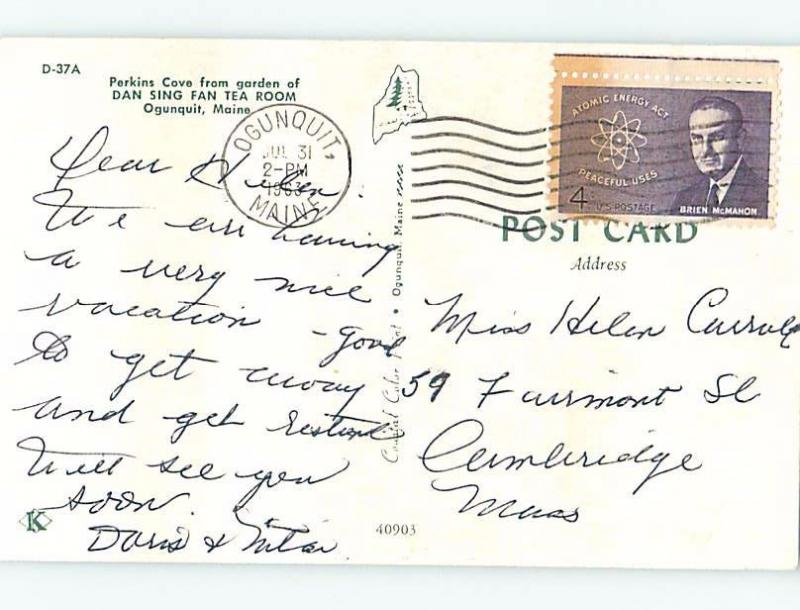 D-37A
Perkins Cove from garden of
DAN SING FAN TEA ROOM
Ogunquit, Maine
OGUNQUIT,
JUL 31
2-PM
1963
MAINE
ATOMIC ENERGY ACT
PEACEFUL USES
4¢ U.S. POSTAGE
BRIEN McMAHON
POST CARD
Address
Dear Helen:
We are having
a very nice
vacation - good
to get away
and get rested
Will see you
soon.
Doris &
Miss Helen Carroll
59 Fairmont St
Cambridge
Mass
Ogunquit, Maine
K
40903